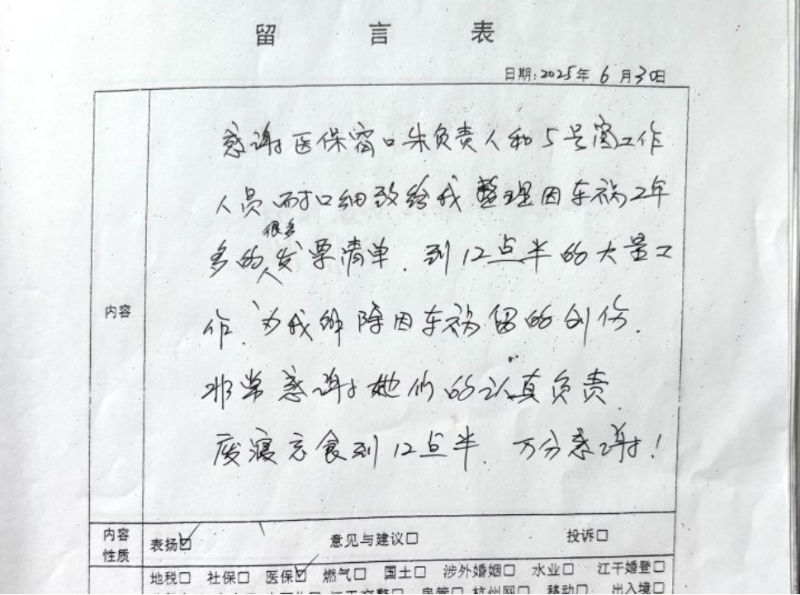 留言表
日期:2025年6月30日
感谢医保窗口朱负责人和5号窗工作
人员耐心细致给我整理因车祸2年
多的很多发票清单.到12点半的大量工
作.为我解除因车祸留的创伤.
非常感谢她们的认真负责
废寝忘食到12点半.万分感谢!
内容
内容性质
表扬☑ 意见与建议□ 投诉□
地税□ 社保□ 医保☑ 燃气□ 国土□ 涉外婚姻□ 水业□ 江干婚登□
杭州网□ 移动□ 出入境□